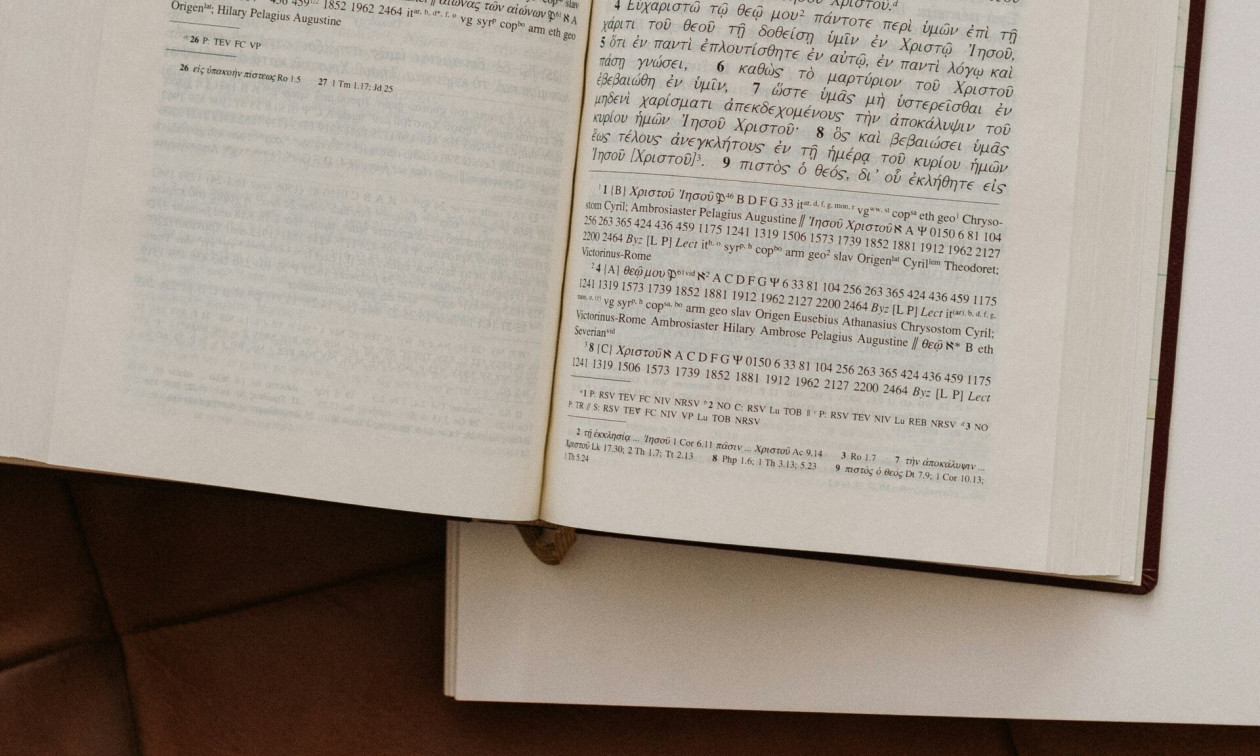 1852 1962 2464 it vg syrᵖ copᵇᵒ arm eth geo
Originˡᵃᵗ; Hilary Pelagius Augustine
ᵃ26 P: TEV FC VP
26 εἰς ὑπακοὴν πίστεως Ro 1.5 27 1 Tm 1.17; Jd 25
4 Εὐχαριστῶ τῷ θεῷ μου² πάντοτε περὶ ὑμῶν ἐπὶ τῇ
χάριτι τοῦ θεοῦ τῇ δοθείσῃ ὑμῖν ἐν Χριστῷ Ἰησοῦ,
5 ὅτι ἐν παντὶ ἐπλουτίσθητε ἐν αὐτῷ, ἐν παντὶ λόγῳ καὶ
πάσῃ γνώσει, 6 καθὼς τὸ μαρτύριον τοῦ Χριστοῦ
ἐβεβαιώθη ἐν ὑμῖν, 7 ὥστε ὑμᾶς μὴ ὑστερεῖσθαι ἐν
μηδενὶ χαρίσματι ἀπεκδεχομένους τὴν ἀποκάλυψιν τοῦ
κυρίου ἡμῶν Ἰησοῦ Χριστοῦ· 8 ὃς καὶ βεβαιώσει ὑμᾶς
ἕως τέλους ἀνεγκλήτους ἐν τῇ ἡμέρᾳ τοῦ κυρίου ἡμῶν
Ἰησοῦ [Χριστοῦ]³. 9 πιστὸς ὁ θεός, δι' οὗ ἐκλήθητε εἰς
¹1 {B} Χριστοῦ Ἰησοῦ 𝔓⁴⁶ B D F G 33 itᵃʳ, ᵈ, ᶠ, ᵍ, ᵐᵒⁿ, ʳ vgʷʷ, ˢᵗ copˢᵃ eth geo¹ Chryso-
stom Cyril; Ambrosiaster Pelagius Augustine // Ἰησοῦ Χριστοῦ ℵ A Ψ 0150 6 81 104
256 263 365 424 436 459 1175 1241 1319 1506 1573 1739 1852 1881 1912 1962 2127
2200 2464 Byz [L P] Lect itᵇ, ᵒ syrᵖ, ʰ copᵇᵒ arm geo² slav Origenˡᵃᵗ Cyrilˡᵉᵐ Theodoret;
Victorinus-Rome
²4 {A} θεῷ μου 𝔓⁶¹ᵛⁱᵈ ℵ² A C D F G Ψ 6 33 81 104 256 263 365 424 436 459 1175
1241 1319 1573 1739 1852 1881 1912 1962 2127 2200 2464 Byz [L P] Lect it⁽ᵃʳ⁾, ᵇ, ᵈ, ᶠ, ᵍ,
vg syrᵖ, ʰ copˢᵃ, ᵇᵒ arm geo slav Origen Eusebius Athanasius Chrysostom Cyril;
Victorinus-Rome Ambrosiaster Hilary Ambrose Pelagius Augustine // θεῷ ℵ* B eth
Severianᵛⁱᵈ
³8 {C} Χριστοῦ ℵ A C D F G Ψ 0150 6 33 81 104 256 263 365 424 436 459 1175
1241 1319 1506 1573 1739 1852 1881 1912 1962 2127 2200 2464 Byz [L P] Lect
ᵃ1 P: RSV TEV FC NIV NRSV ᵇ2 NO C: RSV Lu TOB // ᶜ P: RSV TEV NIV Lu REB NRSV ᵈ3 NO
P: TR // S: RSV TEV FC NIV VP Lu TOB NRSV
2 τῇ ἐκκλησίᾳ ... Ἰησοῦ 1 Cor 6.11 πᾶσιν ... Χριστοῦ Ac 9.14 3 Ro 1.7 7 τὴν ἀποκάλυψιν ...
Χριστοῦ Lk 17.30; 2 Th 1.7; Tt 2.13 8 Php 1.6; 1 Th 3.13; 5.23 9 πιστὸς ὁ θεός Dt 7.9; 1 Cor 10.13;
1 Th 5.24